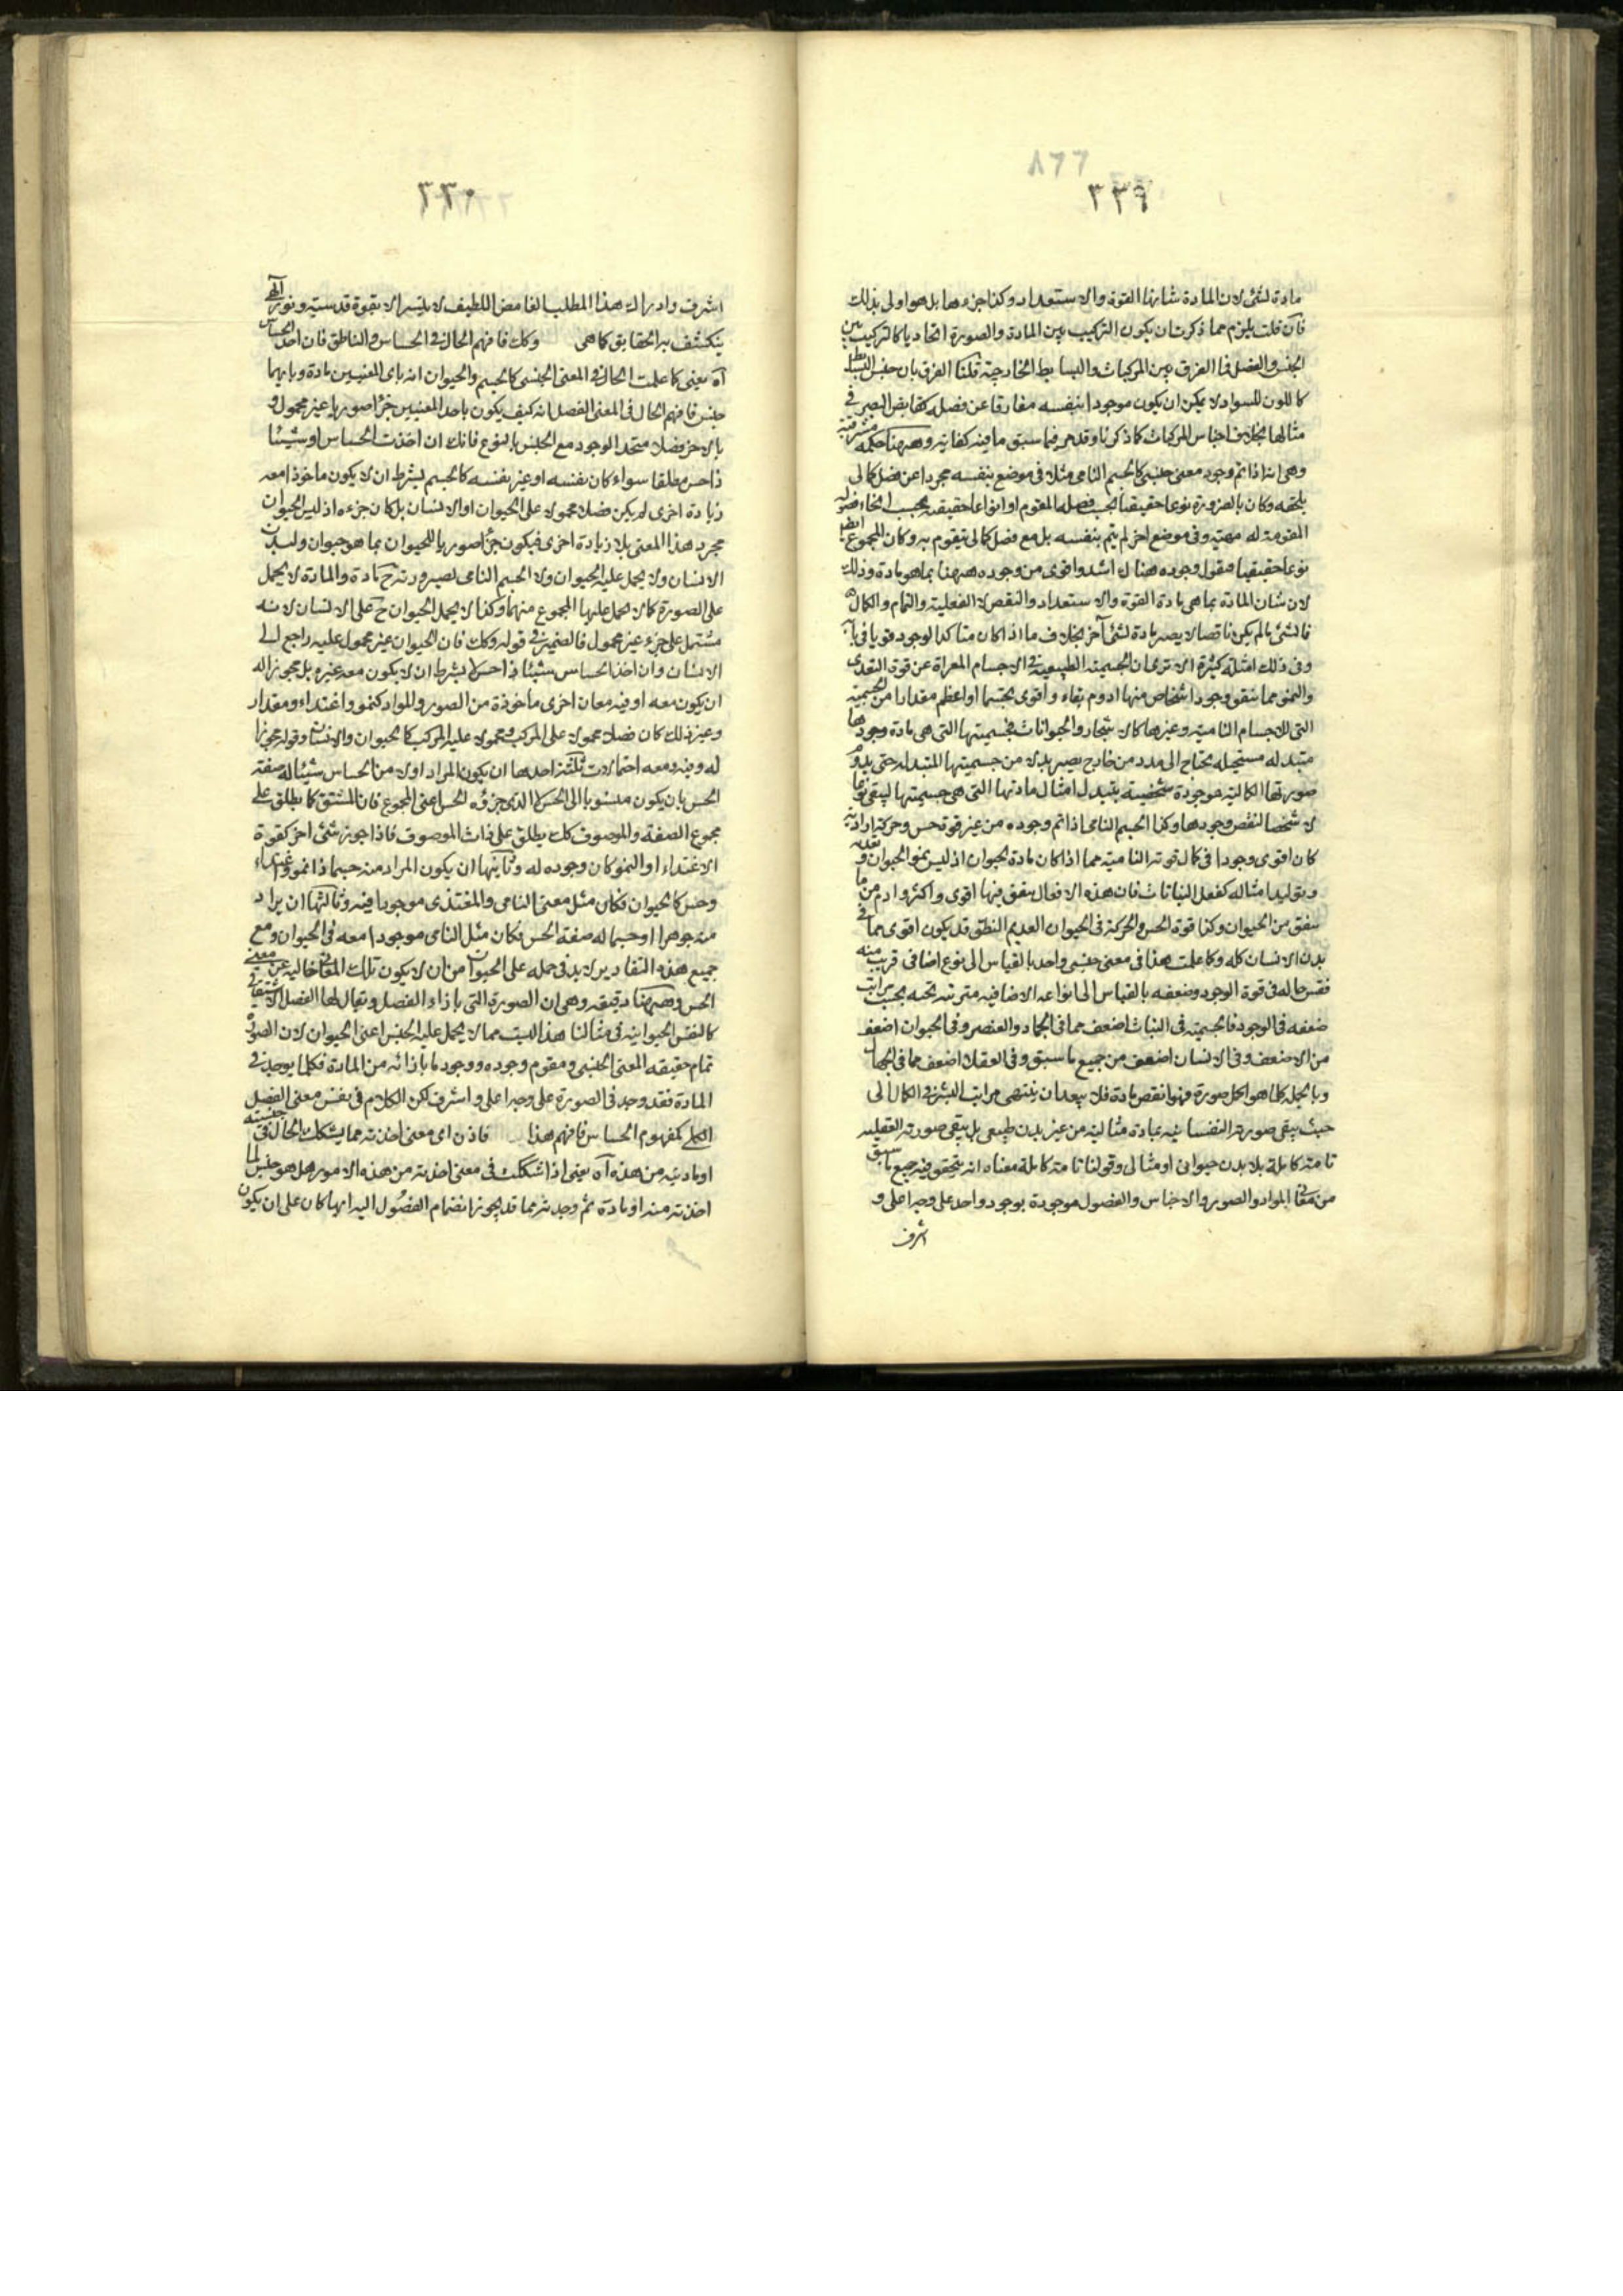 ٨٦٦
٣٣٩
مادة لشئ لان المادة شانها القوة والاستعداد وكذا جزءها بل هو اولى بذلك
فان قلت يلزم مما ذكرت ان يكون التركيب بين المادة والصورة اتحاديا كالتركيب بين
الجنس والفصل فما الفرق بين المركبات والبسايط الخارجية قلنا الفرق بان جنس البسيط
كاللون للسواد لا يمكن ان يكون موجودا بنفسه مفارقا عن فصله كقابض البصر في
مثالها بخلاف اجناس المركبات كما ذكرنا وقد مر فيما سبق ما فيه كفاية وههنا حكمة مشرقية
وهى انه اذا تم وجود معنى جنسى كالجسم النامى مثلا فى موضع بنفسه مجردا عن فصل كمالى
يلحقه وكان بالضرورة نوعا حقيقيا بحسب فصله المقوم او انواعا حقيقية بحسب انحاء فصوله
المقومة له مهيته وفى موضع اخر لم يتم بنفسه بل مع فصل كمالى يتقوم به وكان المجموع ايضا
نوعا حقيقيا فنقول وجوده هناك اشد واقوى من وجوده ههنا بما هو مادة وذلك
لان شان المادة بما هى مادة القوة والاستعداد والنقص لا الفعلية والتمام والكمال
فالشئ ما لم يكن ناقصا لا يصير مادة لشئ آخر بخلاف ما اذا كان متاكد الوجود قويا فى بابه
وفى ذلك امثلة كثيرة الا ترى ان الجسمية الطبيعية فى الاجسام المعراة عن قوة التغذى
والنمو مما يتفق وجود اشخاص منها ادوم بقاء واقوى تجسما او اعظم مقدارا من الجسمية
التى للاجسام النامية وغيرها كالاشجار والحيوانات فجسميتها التى هى مادة وجودها
متبدله مستحيله يحتاج الى مدد من خارج يصير بدلا من جسميتها المتبدله حتى يدوم
صورتها الكمالية موجودة شخصية بتبدل امثال مادتها التى هى جسميتها ليبقى نوعا
لا شخصا لنقص وجودها وكذا الجسم النامى اذا تم وجوده من غير قوة حس وحركة ارادية
كان اقوى وجودا فى كمال قوته النامية مما اذا كان مادة لحيوان اذ ليس نمو الحيوان وتغذيه
وتوليد امثاله كفعل النباتات فان هذه الافعال يتفق فيها اقوى واكثر وادوم مما
يتفق من الحيوان وكذا قوة الحس والحركة فى الحيوان العديم النطق قد يكون اقوى مما فى
بدن الانسان كله وكما علمت هذا فى معنى جنسى واحد بالقياس الى نوع اضافى قريب منه
فقس حاله فى قوة الوجود وضعفه بالقياس الى انواعه الاضافيه مترتبه تحته بحسب مراتب
ضعفه فى الوجود فالجسمية فى النبات اضعف مما فى الجماد والعنصر وفى الحيوان اضعف
من الاضعف وفى الانسان اضعف من جميع ما سبق وفى العقلاء اضعف مما فى الجهال
وبالجملة كلما هو اكمل صورة فهو انقص مادة فلا يبعد ان ينتهى مراتب الشرف والكمال الى
حيث يبقى صورته النفسانية بمادة مثالية من غير بدن طبيعى بل يبقى صورته العقلية
تامة كاملة بلا بدن حيوانى او مثالى وقولنا تامة كاملة معناه انه يتحقق فيه جميع ما سبق
من معانى المواد والصور والاجناس والفصول موجودة بوجود واحد على وجه اعلى و
اشرف
٣٣٠
اشرف وادراك هذا المطلب الغامض اللطيف لا يتيسر الا بقوة قدسية ونور الهى
ينكشف به الحقايق كما هى وكك فافهم الحال فى الحساس والناطق فان اخذ الحساس
آه يعنى كما علمت الحال فى المعنى الجنسى كالجسم والحيوان انه باى المعنيين مادة وبايهما
جنس فافهم الحال فى المعنى الفصل انه كيف يكون باحد المعنيين جزءا صوريا غير محمول و
بالاخر فصلا متحد الوجود مع الجنس بالنوع فانك ان اخذت الحساس او شيئا
ذا حس مطلقا سواء كان بنفسه او غير بنفسه كالجسم بشرط ان لا يكون ماخوذا معه
زيادة اخرى لم يكن فصلا محمولا على الحيوان او الانسان بل كان جزءه اذ ليس الحيوان
مجرد هذا المعنى بلا زيادة اخرى فيكون جزءا صوريا للحيوان بما هو حيوان ولبدن
الانسان ولا يحمل عليه الحيوان ولا الجسم النامى لصيرورته ح مادة والمادة لا يحمل
على الصورة كما لا يحمل عليها المجموع منهما وكذا لا يحمل الحيوان ح على الانسان لانه
مشتمل على جزء غير محمول فالضمير فى قوله وكك فان الحيوان غير محمول عليه راجع الى
الانسان وان اخذ الحساس شيئا ذا حس لا بشرط ان لا يكون معه غيره بل مجوزا له
ان يكون معه او فيه معان اخرى ماخوذة من الصور والمواد كنمو واغتذاء ومقدار
وغير ذلك كان فصلا محمولا على المركب ومحمولا عليه المركب كالحيوان والانسان وقوله مجوزا
له وفيه ومعه احتمالات ثلثة احدها ان يكون المراد اولا من الحساس شيئا له صفة
الحس بان يكون منسوبا الى الحس الذى جزؤه الحس اعنى المجموع فان المشتق كما يطلق على
مجموع الصفة والموصوف كك يطلق على ذات الموصوف فاذا جوز شئ اخر كقوة
الاغتذاء او النمو كان وجوده له وثانيها ان يكون المراد منه جسما ذا نمو واغتذاء
وحس كالحيوان فكان مثل معنى النامى والمغتذى موجودا فيه وثالثها ان يراد
منه جوهرا او جسما له صفة الحس فكان مثل النامى موجودا معه فى الحيوان ومع
جميع هذه التقادير لا بد فى حمله على الحيوان من ان لا يكون تلك المعانى خالية عن معنى
الحس وههنا دقيقة وهى ان الصورة التى بازاء الفصل ويقال لها الفصل الاشتقاقى
كالنفس الحيوانية فى مثالنا هذا ليست مما لا يحمل عليه الجنس اعنى الحيوان لان الصورة
تمام حقيقة المعنى الجنسى ومقوم وجوده ووجود ما بازائه من المادة فكلما يوجد فى
المادة فقد وجد فى الصورة على وجه اعلى واشرف لكن الكلام فى نفس معنى الفصل
الكلى كمفهوم الحساس فافهم هذا فاذن اى معنى اخذته مما يشكل الحال فى جنسيته
او ماديته من هذه آه يعنى اذا اشكلت فى معنى اخذته من هذه الامور هل هو جنس لما
اخذته منه او مادة ثم وجدته مما قد يجوز انضمام الفصول اليه ايها كان على ان يكون